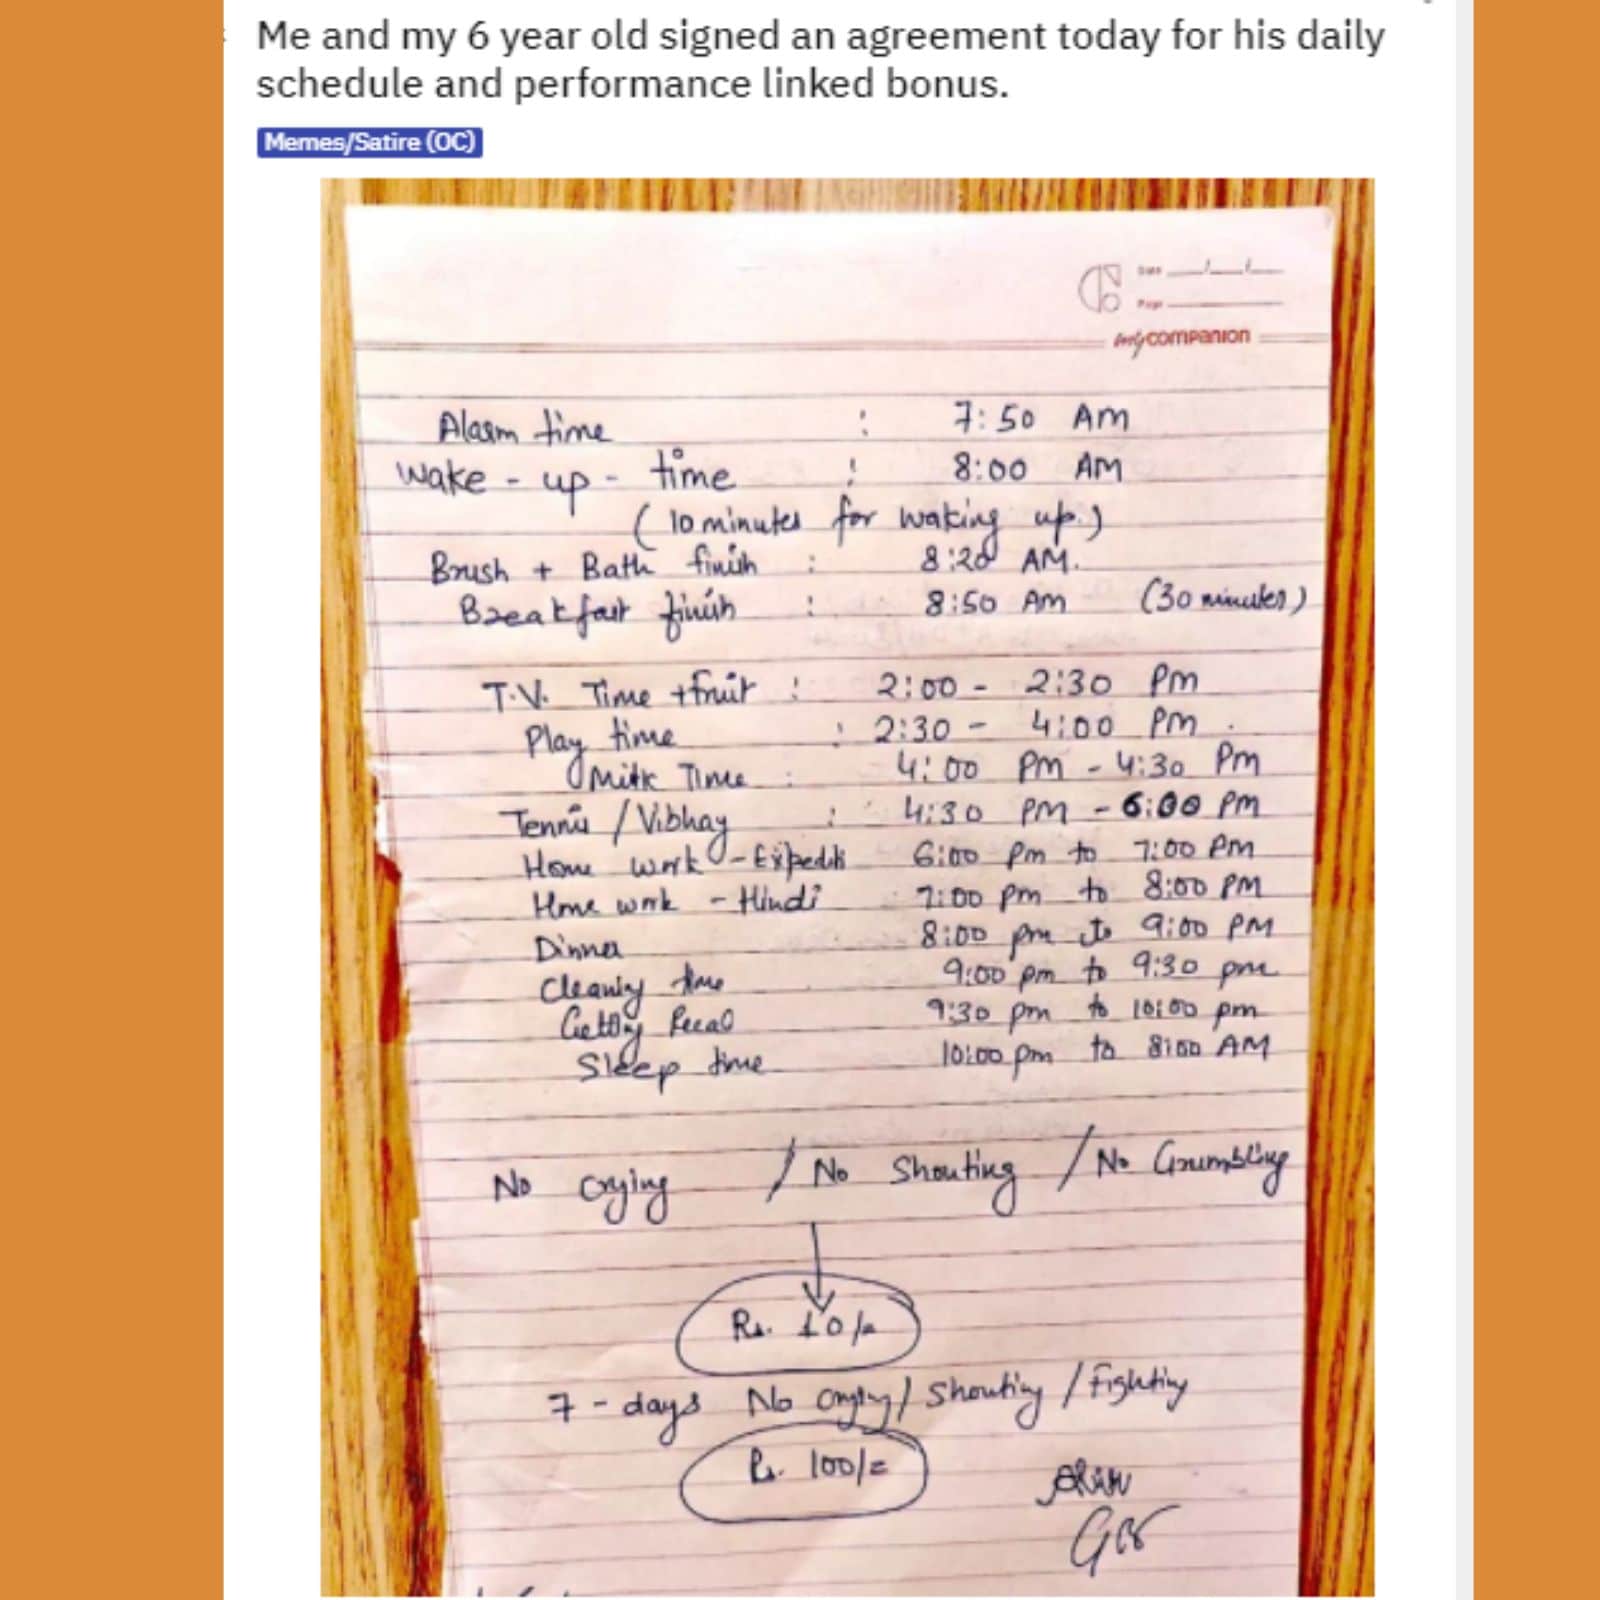 Me and my 6 year old signed an agreement today for his daily
schedule and performance linked bonus.
Memes/Satire (OC)
Date
Page
my companion
Alarm time : 7:50 AM
Wake - up - time : 8:00 AM
(10 minutes for waking up.)
Brush + Bath finish : 8:20 AM.
Breakfast finish : 8:50 AM (30 minutes)
T.V. Time + fruit : 2:00 - 2:30 PM
Play time : 2:30 - 4:00 PM.
Milk Time : 4:00 PM - 4:30 PM
Tennis / Vibhay : 4:30 PM - 6:00 PM
Home work - 6:00 Pm to 7:00 Pm
Home work - Hindi 7:00 pm to 8:00 PM
Dinner 8:00 pm to 9:00 PM
Cleaning time 9:00 pm to 9:30 pm
9:30 pm to 10:00 pm
Sleep time 10:00 pm to 8:00 AM
No crying / No Shouting / No Grumbling
Rs. 10/=
7 - days No crying / Shouting / Fighting
Rs. 100/=